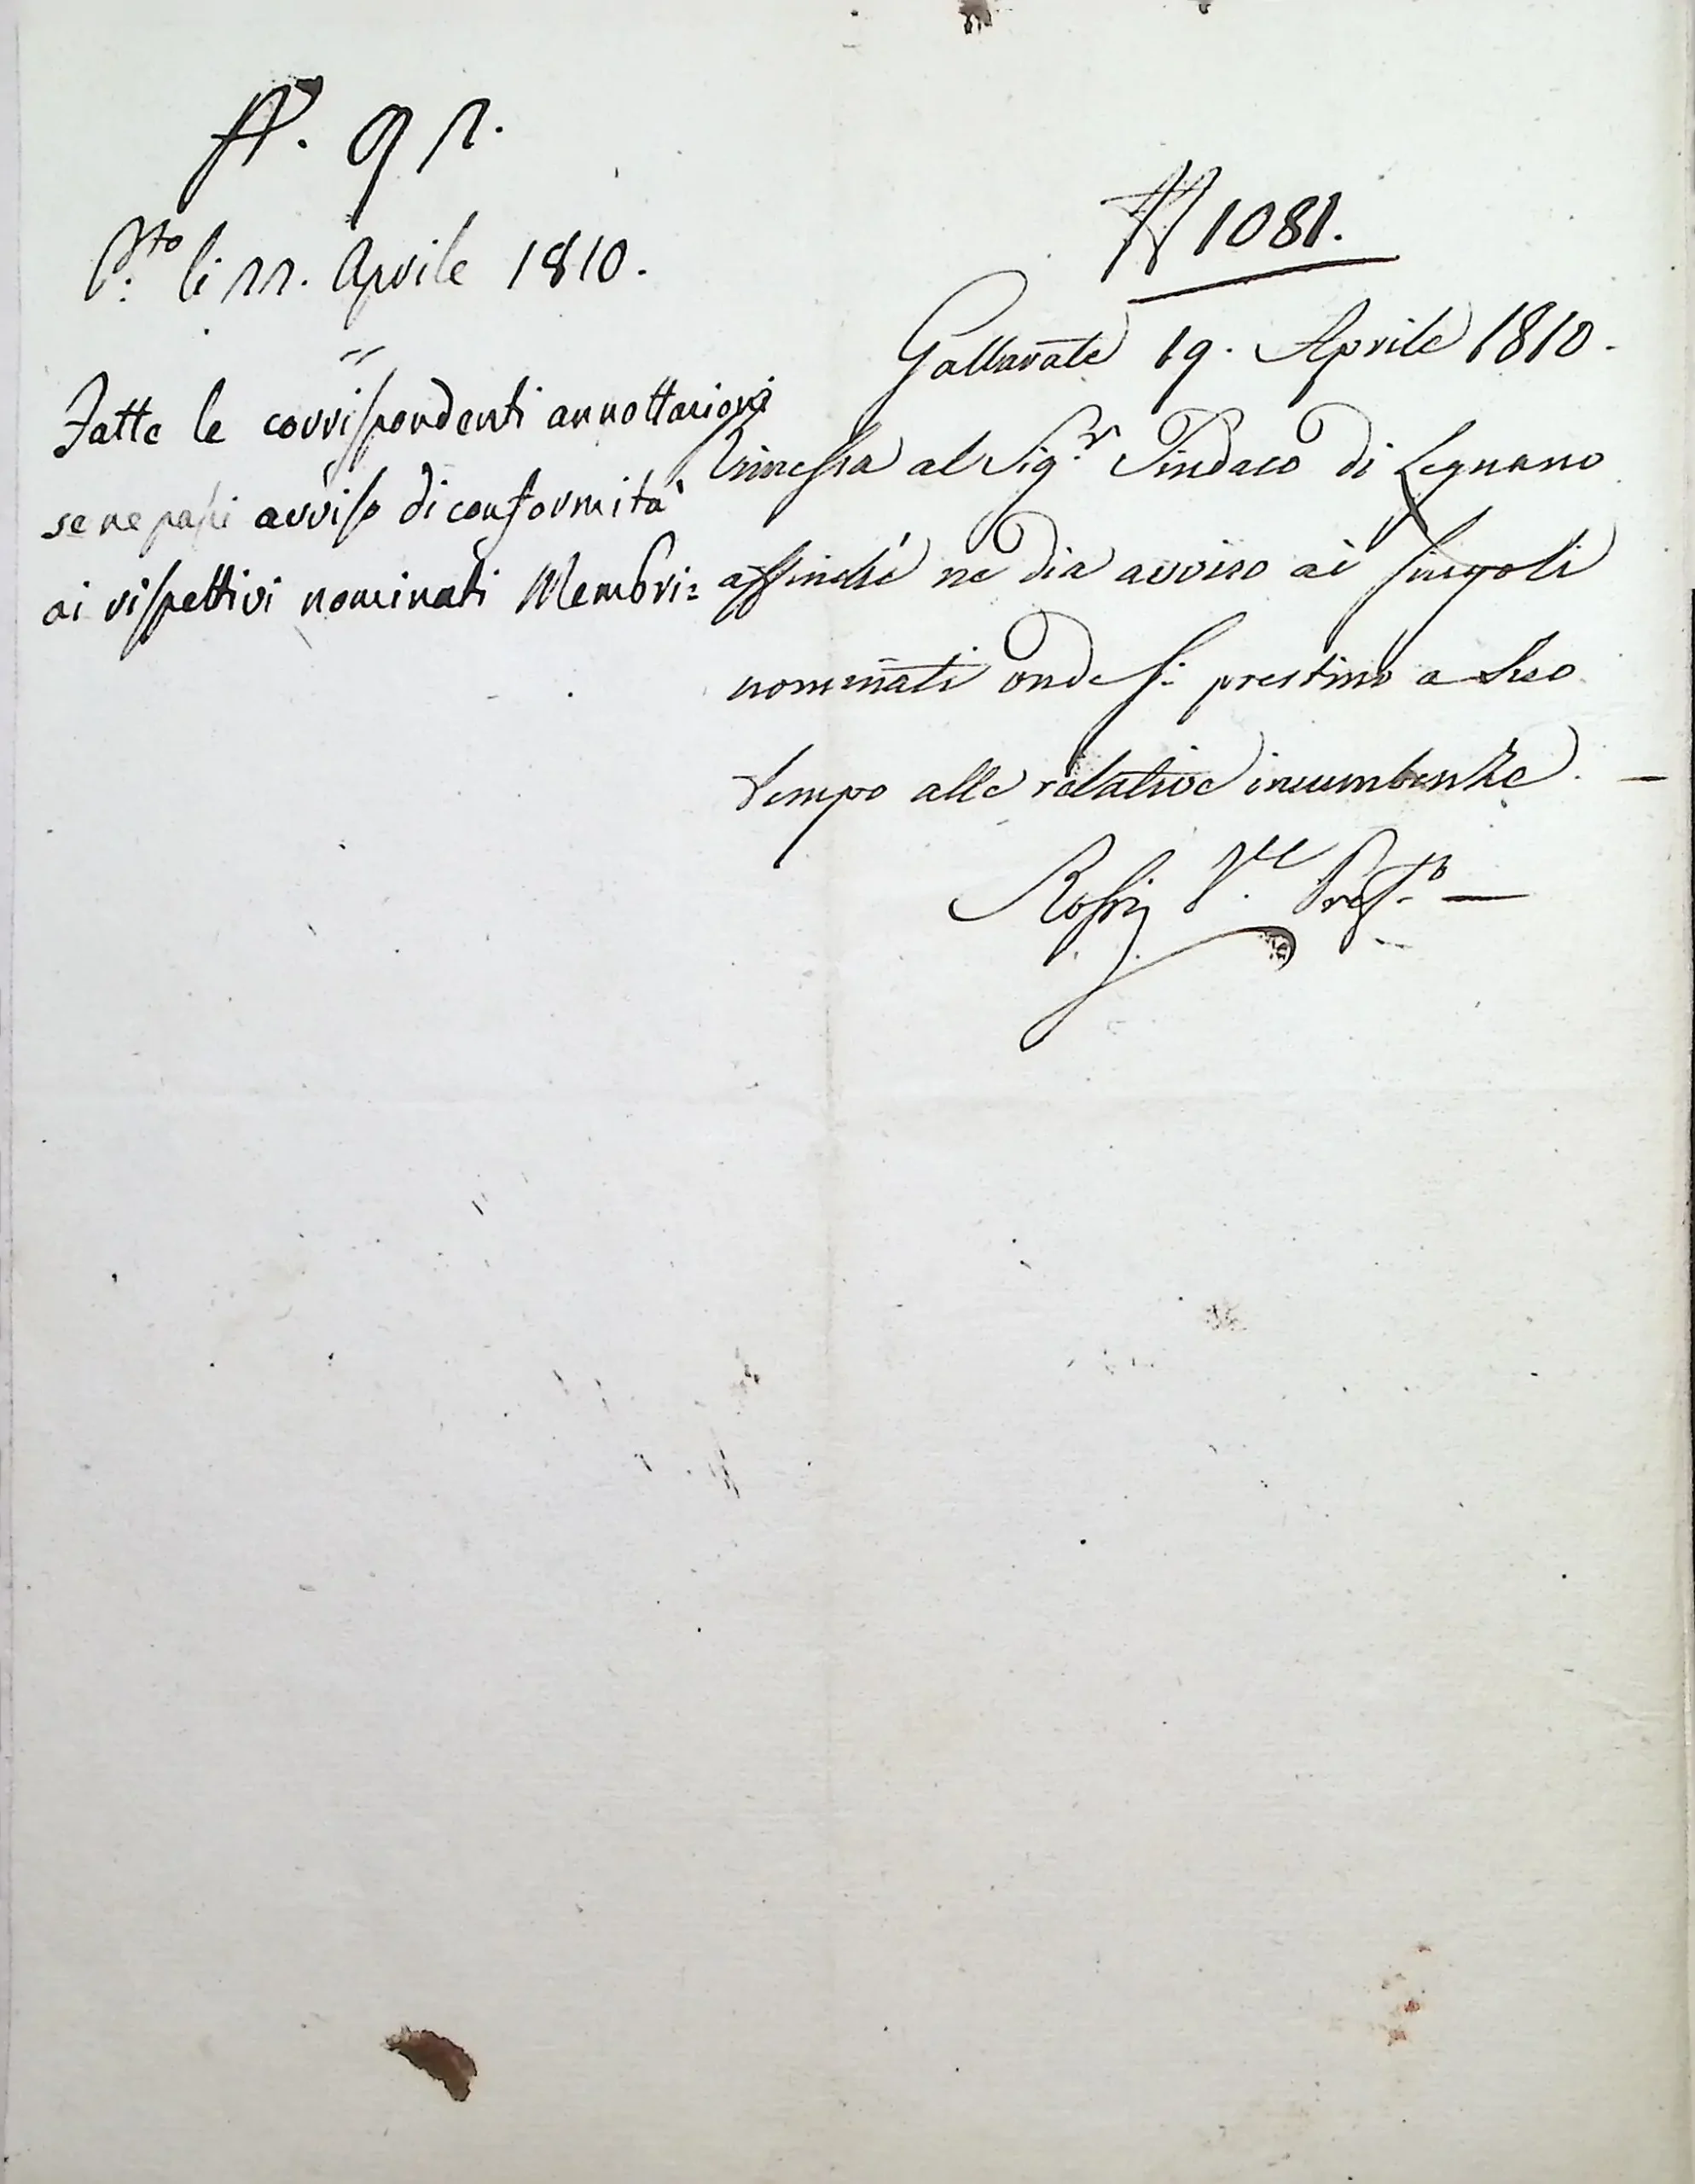 N. 92.
P.to li 22. Aprile 1810.
Fatte le corrispondenti annottazioni
se ne passi avviso di conformità
ai rispettivi nominati Membri=
N 1081.
Gallarate 19. Aprile 1810.
Rimessa al Sig.r Sindaco di Legnano
affinché ne dia avviso ai singoli
nominati onde si prestino a suo
tempo alle relative incumbenze. —
Rossi V.e Pref.o —